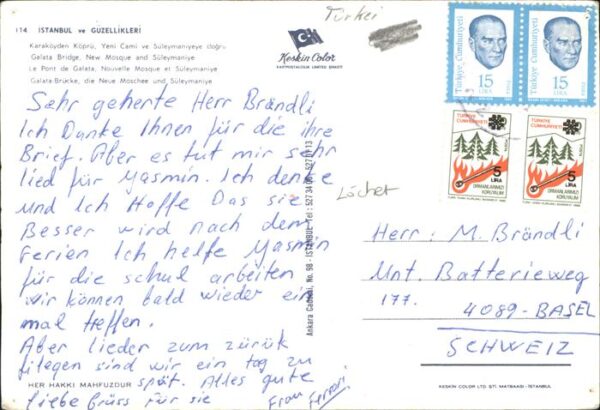 114 ISTANBUL ve GÜZELLİKLERİ
Karaköyden Köprü, Yeni Cami ve Süleymaniyeye doğru
Galata Bridge, New Mosque and Süleymaniye
Le Pont de Galata, Nouvelle Mosque et Süleymaniye
Galata-Brücke, die Neue Moschee und Süleymaniye
Türkei
Keskin Color
KARTPOSTALCILIK LIMITED ŞİRKETİ
Sehr geherte Herr Brändli
Ich Danke Ihnen für die ihre
Brief. Aber es tut mir sehr
lied für Yasmin. Ich denke
und Ich Hoffe Das sie
Besser wird nach dem
Ferien Ich helfe Yasmin
für die schul arbeiten
wir können bald wieder ein
mal treffen.
Aber lieder zum zürük
filegen sind wir ein tag zu
spät. Alles gute
liebe grüss für sie
Frau Ferrari
HER HAKKI MAHFUZDUR
Ankara Caddesi, No. 98 - ISTANBUL Tel :
Löchet
Türkiye Cumhuriyeti
15
LİRA
Türkiye Cumhuriyeti
15
LİRA
TÜRKİYE
CUMHURİYETİ
5
LİRA
ORMANLARIMIZI
KORUYALIM
TÜRKİYE
CUMHURİYETİ
5
LİRA
ORMANLARIMIZI
KORUYALIM
Herr: M. Brändli
Unt. Batterieweg
177.
4089-BASEL
SCHWEIZ
KESKIN COLOR LTD ŞTİ MATBAASI - ISTANBUL